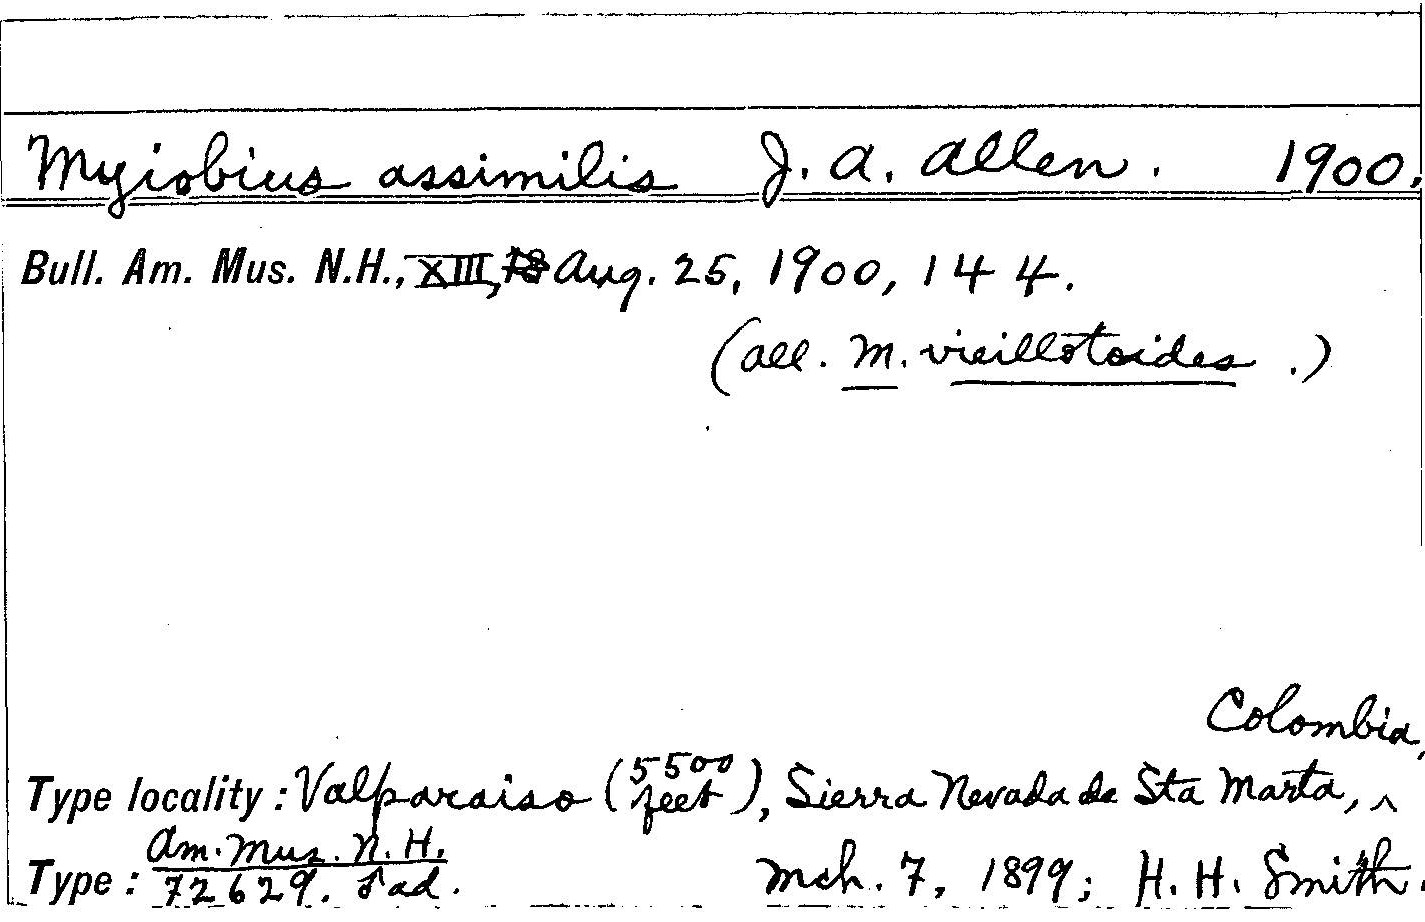 Myiobius assimilis J. A. Allen. 1900.
Bull. Am. Mus. N.H., XIII, Aug. 25, 1900, 144.
(all. M. vieillotoides.)
Colombia,
Type locality: Valparaiso (5500 feet), Sierra Nevada de Sta Marta, ^
Type: Am. Mus. N. H. 72629. ♂ ad. Mch. 7, 1899; H. H. Smith.